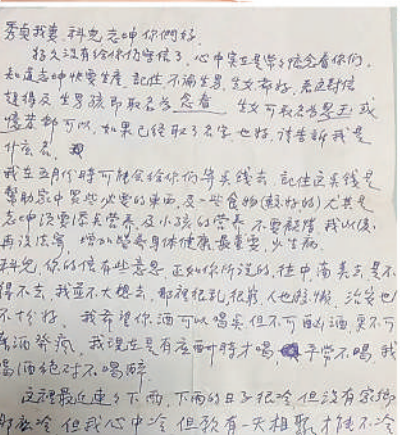 秀貞我妻,科兒志坤你們好.
好久沒有給你仍寫信了,心中实在是常々惦念着你们,
知道志坤快要生產,記住,不論生男,生女都好,若这封信
趕得及生男孩即取名为念眷,生女可取名为思玉或
憶若都可以,如果已經取了名字,也好,請告訴我是
什么名.
我在五月份時可能会给你们寄美钱去,記住这美钱是
幫助家中買些必要的東西,及一些食物(較好的)尤其是
志坤須要保養营养,及小孩的营养,不要疑惜,我以後
再設法寄,增加营养身体健康最重要,少生病.
科兒,你的信有些意思,正如你所說的,往中南美去是不
得不去,我並不大想去,那裡很乱很窮,人也懶,治安也
不十分好.我希望你酒可以喝点但不可酗酒,更不可
酒發瘋,我現在是有应酬時才喝,平常不喝,我
喝酒絕对不喝醉.
这裡最近連々下雨,下雨的日子很冷,但没有家鄉
那麼冷,但我心中冷,但願有一天相聚才能不冷